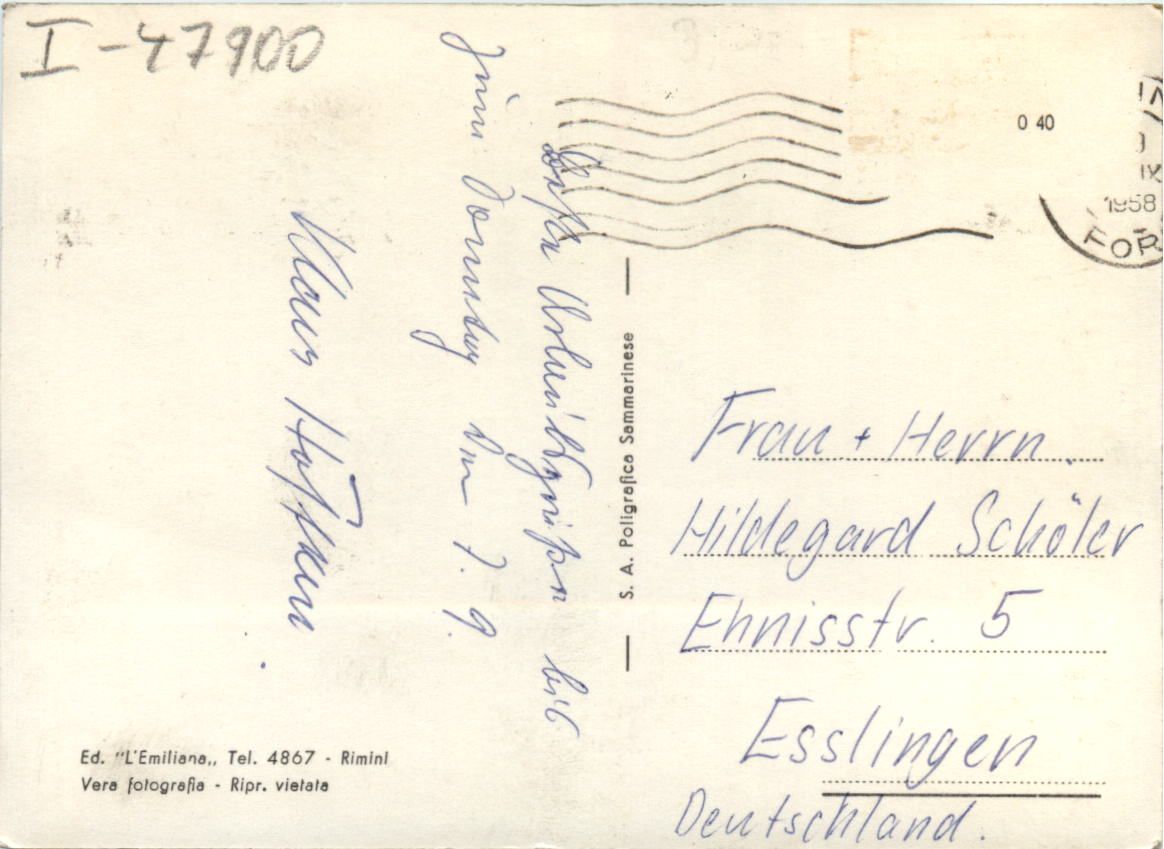 I-47900
Urlaubsgrüßen bis
zum
7. 9.
Klaus
0 40
IX
1958
FOR
S. A. Poligrafica Sammarinese
Frau + Herrn
Hildegard Schöler
Ehnisstr. 5
Esslingen
Deutschland.
Ed. "L'Emiliana„ Tel. 4867 - Rimini
Vera fotografia - Ripr. vietata